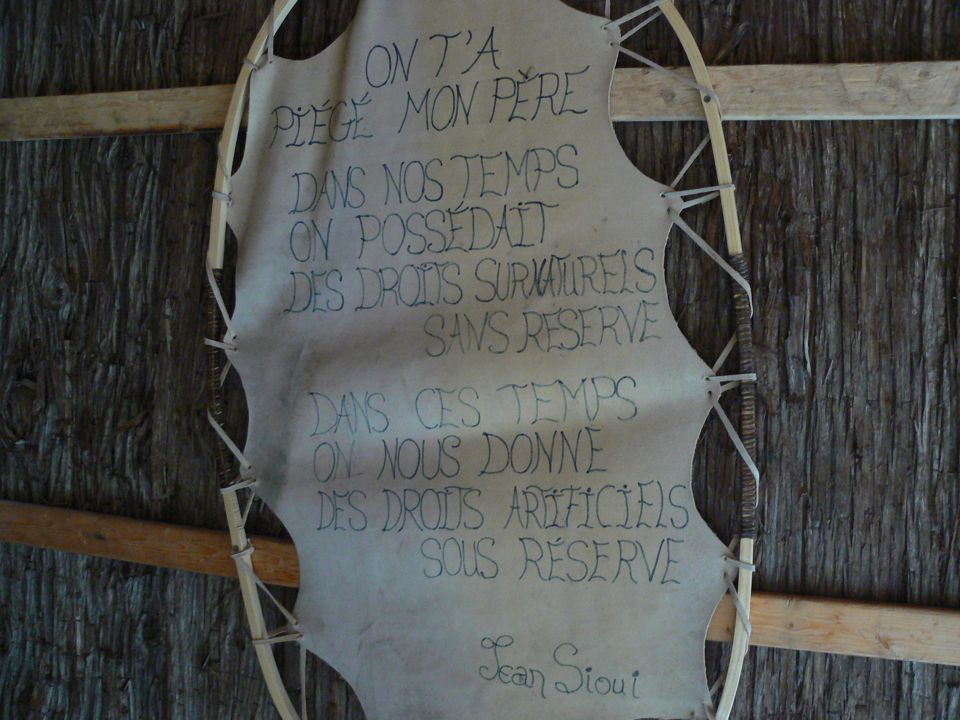 ON T'A
PIÉGÉ MON PÈRE
DANS NOS TEMPS
ON POSSÉDAIT
DES DROITS SURNATURELS
SANS RESERVE
DANS CES TEMPS
ON NOUS DONNE
DES DROITS ARTIFICIELS
SOUS RÉSERVE
Jean Sioui